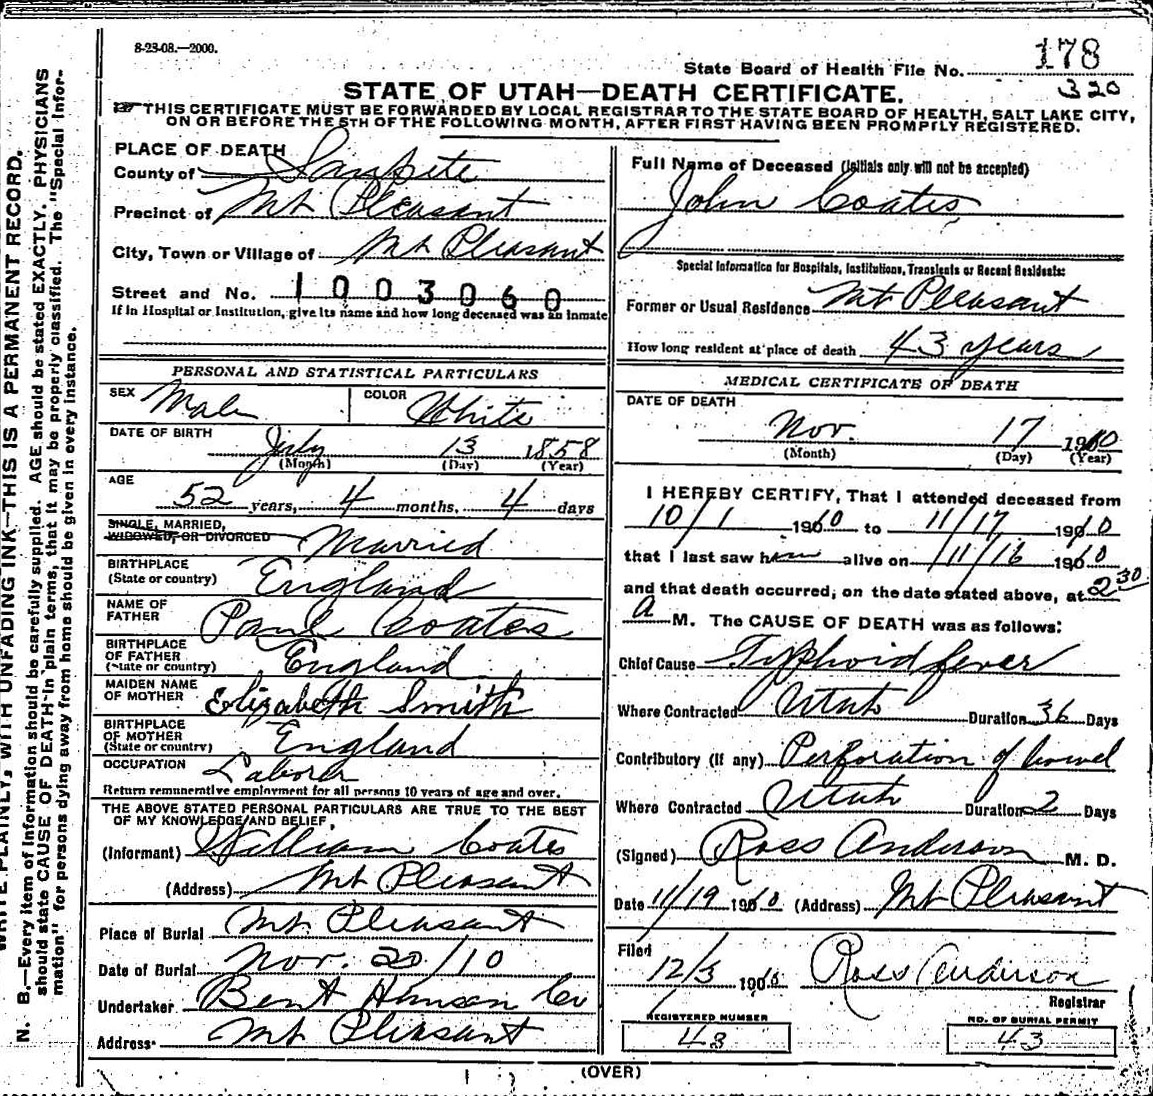 8-23-08.—2000.
State Board of Health File No. 178
320
STATE OF UTAH—DEATH CERTIFICATE.
THIS CERTIFICATE MUST BE FORWARDED BY LOCAL REGISTRAR TO THE STATE BOARD OF HEALTH, SALT LAKE CITY,
ON OR BEFORE THE 5TH OF THE FOLLOWING MONTH, AFTER FIRST HAVING BEEN PROMPTLY REGISTERED.
PLACE OF DEATH
County of Sanpete
Precinct of Mt Pleasant
City, Town or Village of Mt Pleasant
Street and No. 1003060
If in Hospital or Institution, give its name and how long deceased was an inmate
PERSONAL AND STATISTICAL PARTICULARS
SEX Male COLOR White
DATE OF BIRTH July 13 1858
(Month) (Day) (Year)
AGE
52 years, 4 months, 4 days
SINGLE, MARRIED,
WIDOWED, OR DIVORCED Married
BIRTHPLACE
(State or country) England
NAME OF
FATHER Paul Coates
BIRTHPLACE
OF FATHER
(State or country) England
MAIDEN NAME
OF MOTHER Elizabeth Smith
BIRTHPLACE
OF MOTHER
(State or country) England
OCCUPATION Laborer
Return remunerative employment for all persons 10 years of age and over.
THE ABOVE STATED PERSONAL PARTICULARS ARE TRUE TO THE BEST
OF MY KNOWLEDGE AND BELIEF
(Informant) William Coates
(Address) Mt Pleasant
Place of Burial Mt. Pleasant
Date of Burial Nov. 20/10
Undertaker Bent Hansen Co
Address Mt Pleasant
Full Name of Deceased (Initials only will not be accepted)
John Coates
Special Information for Hospitals, Institutions, Transients or Recent Residents:
Former or Usual Residence Mt Pleasant
How long resident at place of death 43 years
MEDICAL CERTIFICATE OF DEATH
DATE OF DEATH
Nov. 17 1910
(Month) (Day) (Year)
I HEREBY CERTIFY, That I attended deceased from
10/1 1910 to 11/17 1910
that I last saw him alive on 11/16 1910
and that death occurred, on the date stated above, at 2 30
a M. The CAUSE OF DEATH was as follows:
Chief Cause Typhoid fever
Where Contracted Utah Duration 36 Days
Contributory (if any) Perforation of bowel
Where Contracted Utah Duration 2 Days
(Signed) Ross Anderson M. D.
Date 11/19 1910 (Address) Mt Pleasant
Filed
12/3 1910 Ross Anderson
Registrar
REGISTERED NUMBER
43
NO. OF BURIAL PERMIT
43
(OVER)
WRITE PLAINLY, WITH UNFADING INK—THIS IS A PERMANENT RECORD.
N. B.—Every item of information should be carefully supplied. AGE should be stated EXACTLY. PHYSICIANS
should state CAUSE OF DEATH in plain terms, that it may be properly classified. The "Special Infor-
mation" for persons dying away from home should be given in every instance.